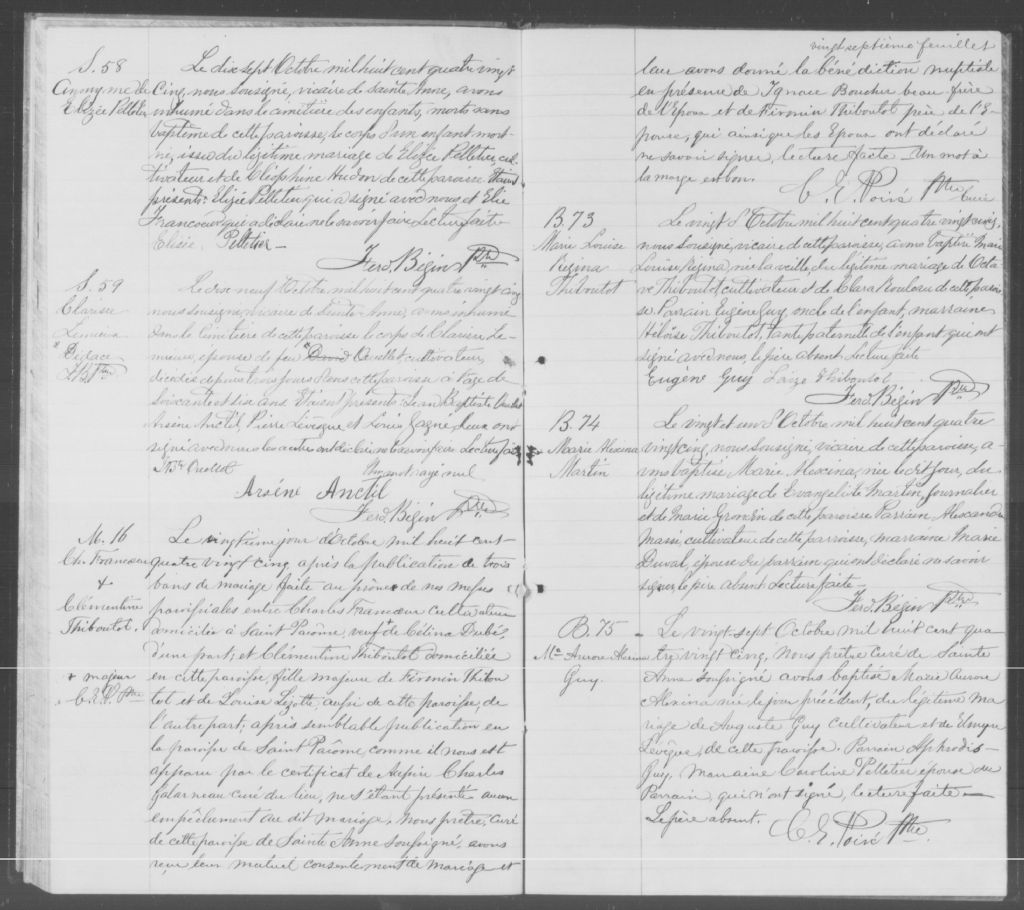 S. 58
Anonyme de
Elizée Pelletier
Le dix sept Octobre mil huit cent quatre vingt
cinq, nous sousigné, vicaire de Sainte Anne, avons
inhumé dans le cimitière des enfants, morts sans
baptême de cette paroisse, le corps d'un enfant mort-
né, issu du légitime mariage de Elizée Pelletier, cul-
tivateur et de Cléophine Hudon de cette paroisse. Etaient
présents: Elizée Pelletier qui a signé avec nous et Elie
Francoeur qui a déclaré ne le savoir faire Lecture faite
Elisée Pelletier
Ferd. Bégin Ptre
S. 59
Clarisse
Lemieux
Didace
F.B. Ptre
Le dix neuf Octobre mil huit cent quatre vingt cinq
nous sousigné, vicaire de Sainte Anne, avons inhumé
dans le cimitière de cette paroisse le corps de Clarisse Le-
mieux, épouse de feu David Ouellet cultivateur,
décédée depuis trois jours dans cette paroisse à l'âge de
soixante et dix ans Etaient présents: Jean Baptiste Ouellet
Arsène Anctil, Pierre Lévesque et Louis Gagné, deux ont
signé avec nous les autres ont déclaré ne le savoir faire Lecture faite
J Bte Ouellet Un mot rayé nul
Arséne Anctil
Ferd. Bégin Ptre
M. 16
Ch. Francoeur
+
Clémentine
Thiboutot.
+ majeur
C. E. P. Ptre
Le vingtième jour d'Octobre mil huit cent
quatre vingt cinq, après la publication de trois
bans de mariage faite au prône de nos messes
paroissiales entre Charles Francoeur cultivateur
domicilié à Saint Pacôme, veuf + de Célina Dubé,
d'une part; et Clémentine Thiboutot domiciliée
en cette paroisse, fille majeure de Firmin Thibou
tot et de Louise Lizotte, aussi de cette paroisse, de
l'autre part; après semblable publication en
la paroisse de Saint Pacôme comme il nous est
apparu par le certificat de Messire Charles
Galarneau curé du lieu, ne s'étant présenté aucun
empêchement au dit mariage, Nous prêtre, curé
de cette paroisse de Sainte Anne soussigné, avons
reçu leur mutuel consentement de mariage et
vingt septième feuillet
leur avons donné la bénédiction nuptiale
en présence de Ignace Boucher beau-frère
de l'Epoux et de Firmin Thiboutot père de l'E-
pouse, qui ainsi que les Epoux ont déclaré
ne savoir signer, lecture faite. Un mot à
la marge est bon.
C. E. Poiré Ptre Curé
B. 73
Marie Louise
Régina
Thiboutot
Le vingt d'Octobre mil huit cent quatre vingt cinq,
nous sousigné, vicaire de cette paroisse, avons baptisé Marie
Louise Régina, née la veille, du légitime mariage de Octa-
ve Thiboutot cultivateur et de Clara Rouleau de cette parois-
se. Parrain Eugène Guy, oncle de l'enfant, marraine
Héloïse Thiboutot, tante paternelle de l'enfant qui ont
signé avec nous, le père absent. Lecture faite
Eugène Guy Loize Thiboutot
Ferd. Bégin Ptre
B. 74
Marie Alexina
Martin
Le vingt et un d'Octobre mil huit cent quatre
vingt cinq, nous sousigné, vicaire de cette paroisse, a-
vons baptisé Marie, Alexina, née le dit jour, du
légitime mariage de Evangéliste Martin, journalier
et de Marie Grondin de cette paroisse Parrain Alexandre
Massé, cultivateur de cette paroisse, marraine Marie
Duval, épouse du parrain qui ont déclaré ne savoir
signer, le père absent Lecture faite
Ferd. Bégin Ptre
B. 75
Mie Aurore Alexina
Guy.
Le vingt-sept Octobre mil huit cent qua
tre vingt cinq, Nous prêtre curé de Sainte
Anne soussigné avons baptisé Marie Aurore
Alexina née le jour précédent, du légitime ma
riage de Auguste Guy cultivateur et de
Levêque, de cette paroisse. Parrain Aphrodis
Guy. Marraine Caroline Pelletier épouse du
Parrain, qui n'ont signé, lecture faite—
Le père absent.
C. E. Poiré Ptre.